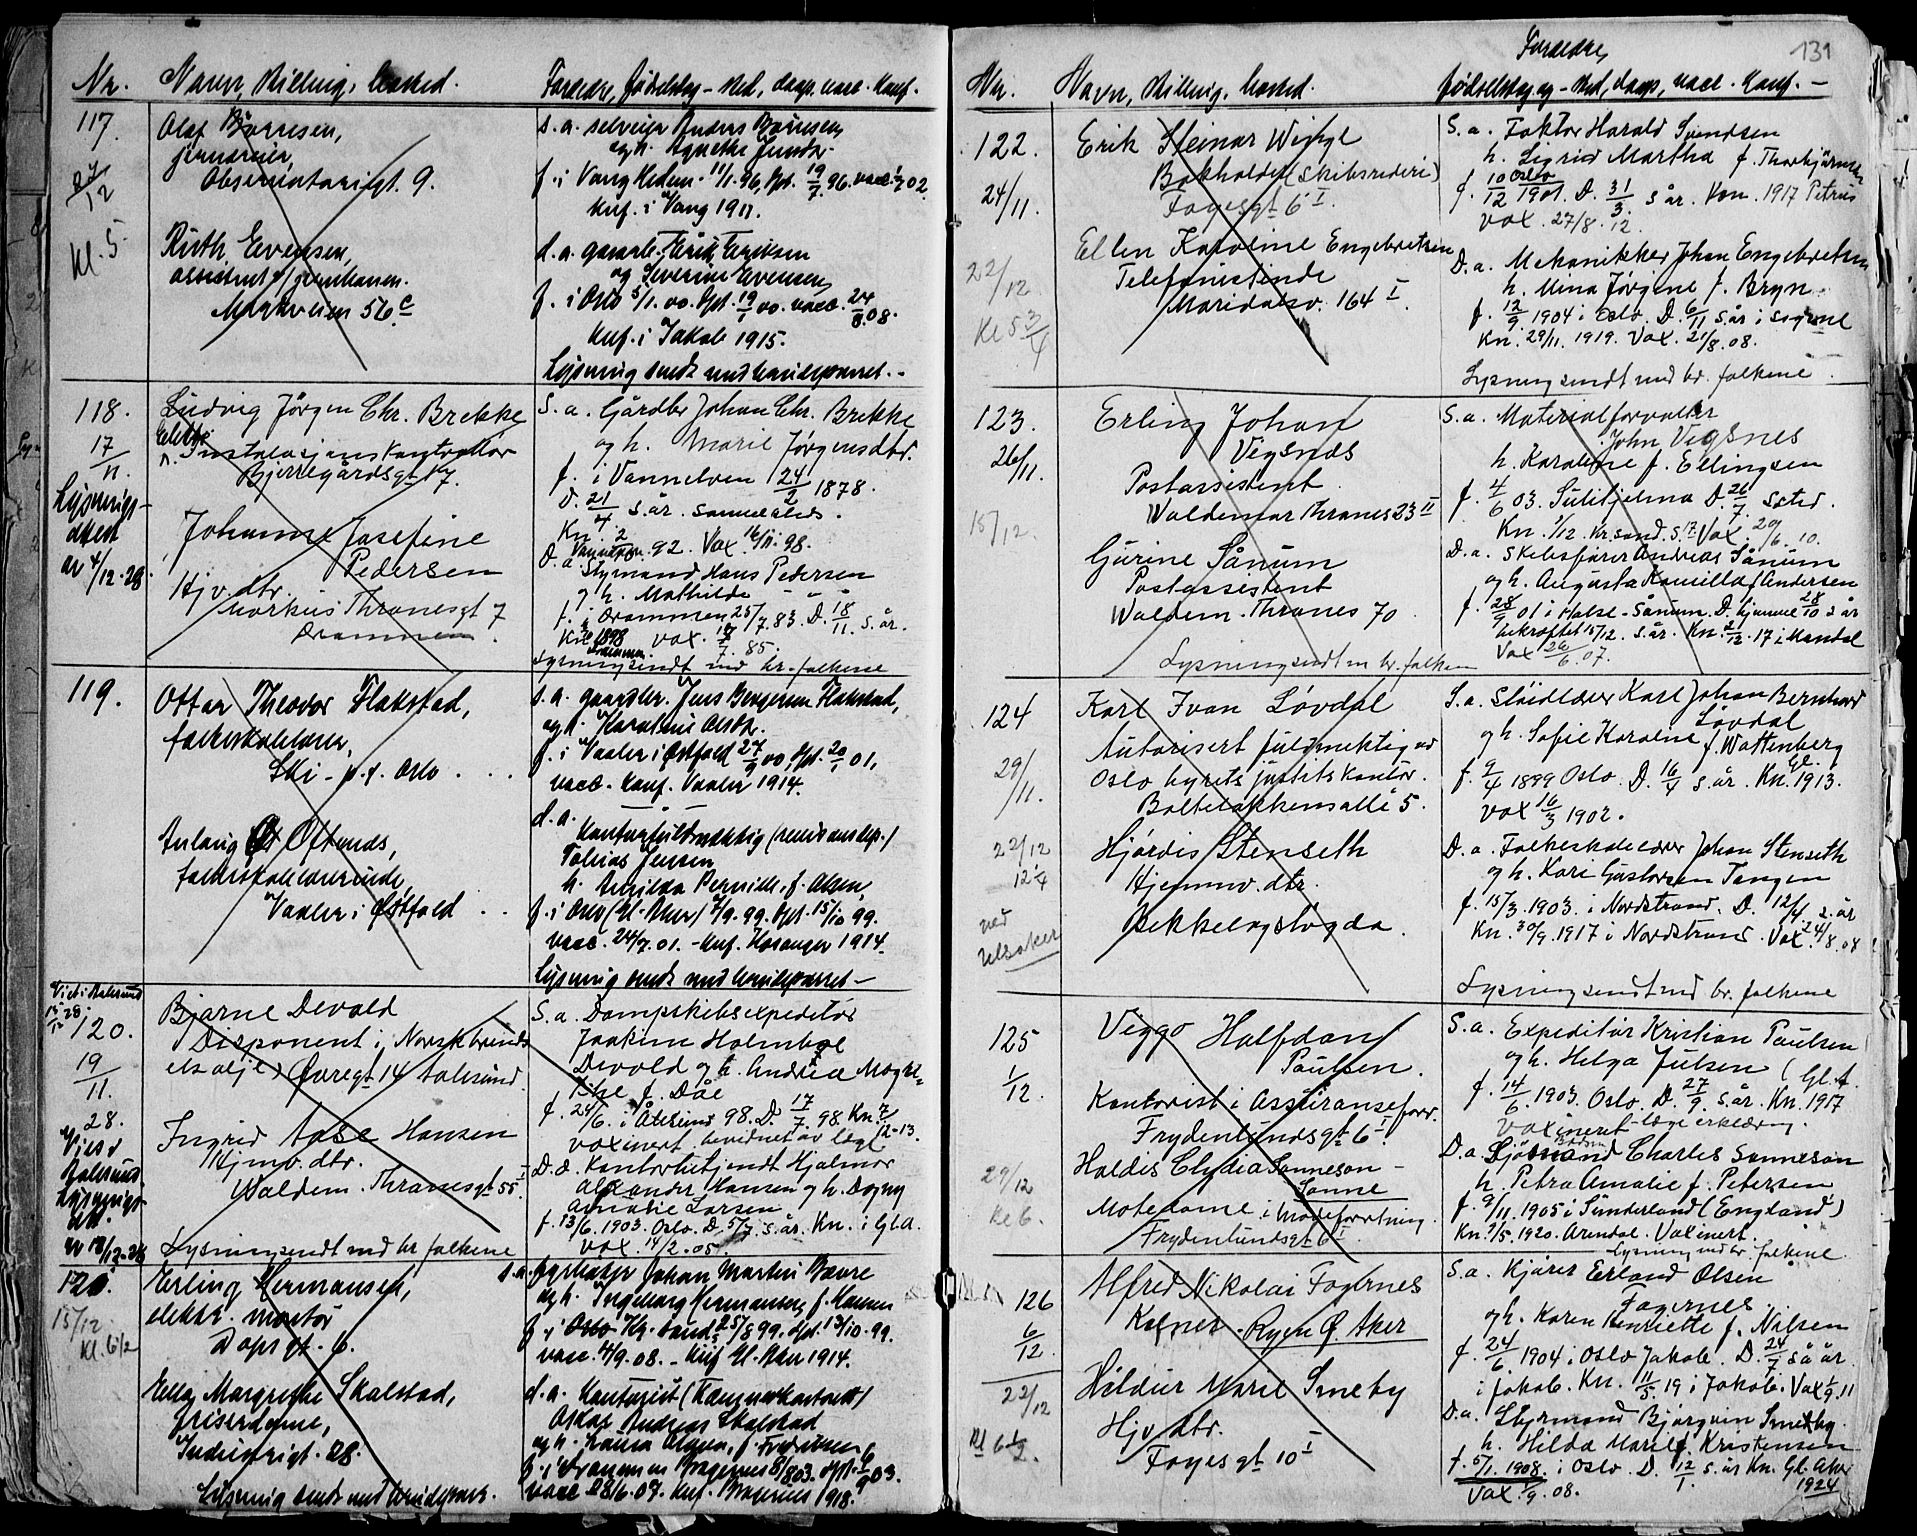 Nr. Navn, stilling, bosted. Forældre, fødselsdag - sted, daap, vacc. konf.
117. Olaf Børresen,
27/12
Observatoriegt. 9.
kl. 5.
s. a. selveier Anders Børresen
f. i Vang Hedem. 11/1.96, dpt. 19/7.96. vacc. 02
knf. i Vang 1911.
Ruth Evensen,
assistent
56 c
og Severine Evensen,
f. i Oslo 5/1.00. dpt. 19/1 00. vacc. 24/8.08.
knf. i Jakob 1915.
Lysning sendt med brudeparret.-
118. Ludvig Jørgen Chr. Brekke
17/11.
Elektr. Instalasjonskontrollør
Bjerregårdsgt 17.
Lysnings-
attest
av 4/12-28.
S. a. Gårdbr Johan Chr. Brekke
og h. Marie Jørgensdtr.
f. i Vannelven 24/2 1878.
D. 21/4 s. år. samme steds.
92. Vax. 16/11.98.
Johanne Josefine
Pedersen
Hjv. dtr.
Markus Thranesgt 7
Drammen.
D. a. Styrmand Hans Pedersen
og h. Mathilde
f. i Drammen 25/7.83. D. 18/11. s. år.
Kn. 1898 Vax. 18/7.85.
Drammen.
Lysning sendt med br.-folkene
119. Ottar Theodor Flakstad,
folkeskolelærer,
Ski - p.t. Oslo.
s. a. gaardbr. Jens Bergersen Flakstad,
og h. Karoline Olsdtr.
f. i Vaaler i Østfold 27/9 00, dpt. 20/1 01,
vacc. konf. Vaaler 1914.
Aslaug Oftenes,
folkeskolelærerinde,
Vaaler i Østfold
d. a.
Kontorfuldmektig
Tobias Jensen
h. Amilda Pernille, f. Olsen,
f. i Oslo (Gl. Aker) 7/9.99. dpt. 15/10 99.
vacc. 24/7.01. - knf. 1914.
Lysning sendt med brudeparret -
Viet i Aalesund
120. Bjarne Devold
19/11.
28.
Disponent i Norsk brends
elsolje, Øvregt 14 Aalesund.
S. a. Dampskibsexpeditør
Joakim Holmboe
Devold og h. Andrea Magre-
the f. Dåe
f. 24/6. i Ålesund 98. D. 17/7.98. Kn. 7/12-13.
voxinert. bevidnet av læge
Viet i
Aalesund.
Lysnings-
Ingrid Aase Hansen
Hjmv. dtr.
Waldem. Thranesgt 55 I
D. a. Kontorbetjendt Hjalmar
Alexander Hansen og h. Dagny
Amalie Larsen
f. 13/6.1903. Oslo. D. 5/7. s. år. Kn. i Gl. A.
vax. 14/2.05.
Lysning sendt med br folkene
121. Erling Hermansen,
15/12
kl. 6 1/2
elektr. montør
Dops gt. 6.
s. a. fyrbøter Johan Martin
og h. Ingeborg Hermansen, f. Hansen
f. i Oslo Kr. sand, 25/8 99. dpt. 13/10.99.
vacc. 4/9.08. - knf. Gl. Aker 1914.
Ella Margrethe Skalstad,
frisørdame,
Industrigt. 28.
d. a. kontorist (Kæmnerkontoret)
Oskar Andreas Skalstad
f. i Drammen Bragernes 8/8 03. dpt. 6/9 03.
vacc 28/6.07. knf. Bragernes 1918.
Lysning sendt med brudeparr.
131
Forældre,
Nr. Navn, stilling, bosted. fødselsdag og - sted, daap, vacc. konf. -
122. Erik Steinar Wighl
24/11.
Bokholder (skibsrederi)
Fogesgt 6 I.
S. a. Faktor Harald Svendsen
h. Sigrid Martha f. Thorbjørnsen
f. 10/12 Oslo 1901. D. 31/3 s år. Kon. 1917 Petrus
Vax. 27/8.12.
22/12
kl 5 3/4
Ellen Karoline Engebretsen
Telefonistinde
Maridalsv. 164 I
D. a. Mekanikker Johan Engebretsen
h. Mina Jørgine f. Bryn
f. 12/9 1904 i Oslo. D. 6/11 s. år i Sagene
Kn. 29/11. 1919. Vax. 21/8.08.
Lysning sendt med br. folkene.
123. Erling Johan
26/11.
Vigsnes
Postassistent
Waldemar Thranes 23 II
15/12.
S. a. Materialforvalter
John Vigsnes
h. Karoline f. Ellingsen
f. 4/6 03. Sulitjelma D. 26/7. s sted.
Kn. 1/12. Kr. sand. S. 17 Vax. 20/6.10.
Gurine Sånum
Postassistent
Waldem. Thranes 70
D. a. Skibsfører Andreas Sånum
og h. Augusta Kamilla f Andersen
f. 28/9 01 i Halse-Sånum. D. hjemme 28/10 s år
bekræftet 15/12. s. år. Kn. 2/12-17 i Mandal
Vax 26/6.07.
Lysning sendt m br. folkene
124 Karl Ivan Løvdal
29/11.
Autorisert fuldmektig ved
Oslo byrets justitskontor.
Bolteløkkensallé 5.
S. a. Sløidlærer Karl Johan Bernhard
Løvdal
og h. Sofie Karoline f. Wattenberg
f. 9/4 1899 Oslo. D. 16/4 s. år. Kn. Gl. 1913.
Vax 16/3 1902.
22/12
12 1/4
ved
Ulsaker
Hjørdis Stenseth
Hjemmv. dtr.
Bekkelagshøgda.
D. a. Folkeskolelærer Johan Stenseth
og h. Kari Gustavsen Tangen
f. 15/3.1903. i Nordstrand. D. 12/4. s. år
Kn. 30/9.1917 i Nordstrand. Vax. 24/8.08
Lysning sendt med br. folkene
125 Viggo Halfdan
1/12.
Paulsen.
Kontorist i Assuranseforr.
Frydenlundsgt 6 I.
S. a. Expeditør Kristian Paulsen
og h. Helga Julsen (Gl. A.
f. 14/6.1903. Oslo. D. 27/9. s. år. Kn. 1917
Voxineret - læge erklæring.
29/12
kl 6.
Haldis Clydia Sonneson -
Sonne
Motedame i Moteforretning.
Frydenlundsgt 6 I
D. a. Sjømand Charles Sonneson
h. Petra Amalie f. Petersen
f. 9/11. 1905 i Sunderland (England)
Kn. 9/5. 1920. Arendal. Vaxinert.
Lysning med br. folkene.
126 Alfred Nikolai Fagernes
6/12.
Kelner - Ryen Ø. Aker
S. a. Kjører Erland Olsen
Fagernes.
og h. Karen Henriette f. Nilsen
f. 24/6. 1904 i Oslo Jakob. D. 24/7 s å år
i Jakob. Kn. 11/5. 19 i Jakob. Vax 1/9.11
22/12
Kl 6 1/2.
Hildur Marie Smeby
Hjv dtr.
Fogesgt 10 I
D. a. Styrmand Bjørgvin Smedby
h. Hilda Marie f. Kristensen
f. 5/1. 1908. i Oslo. D. 12/1. s. år Kn. Gl. Aker
Vax. 1/9.08. 1924